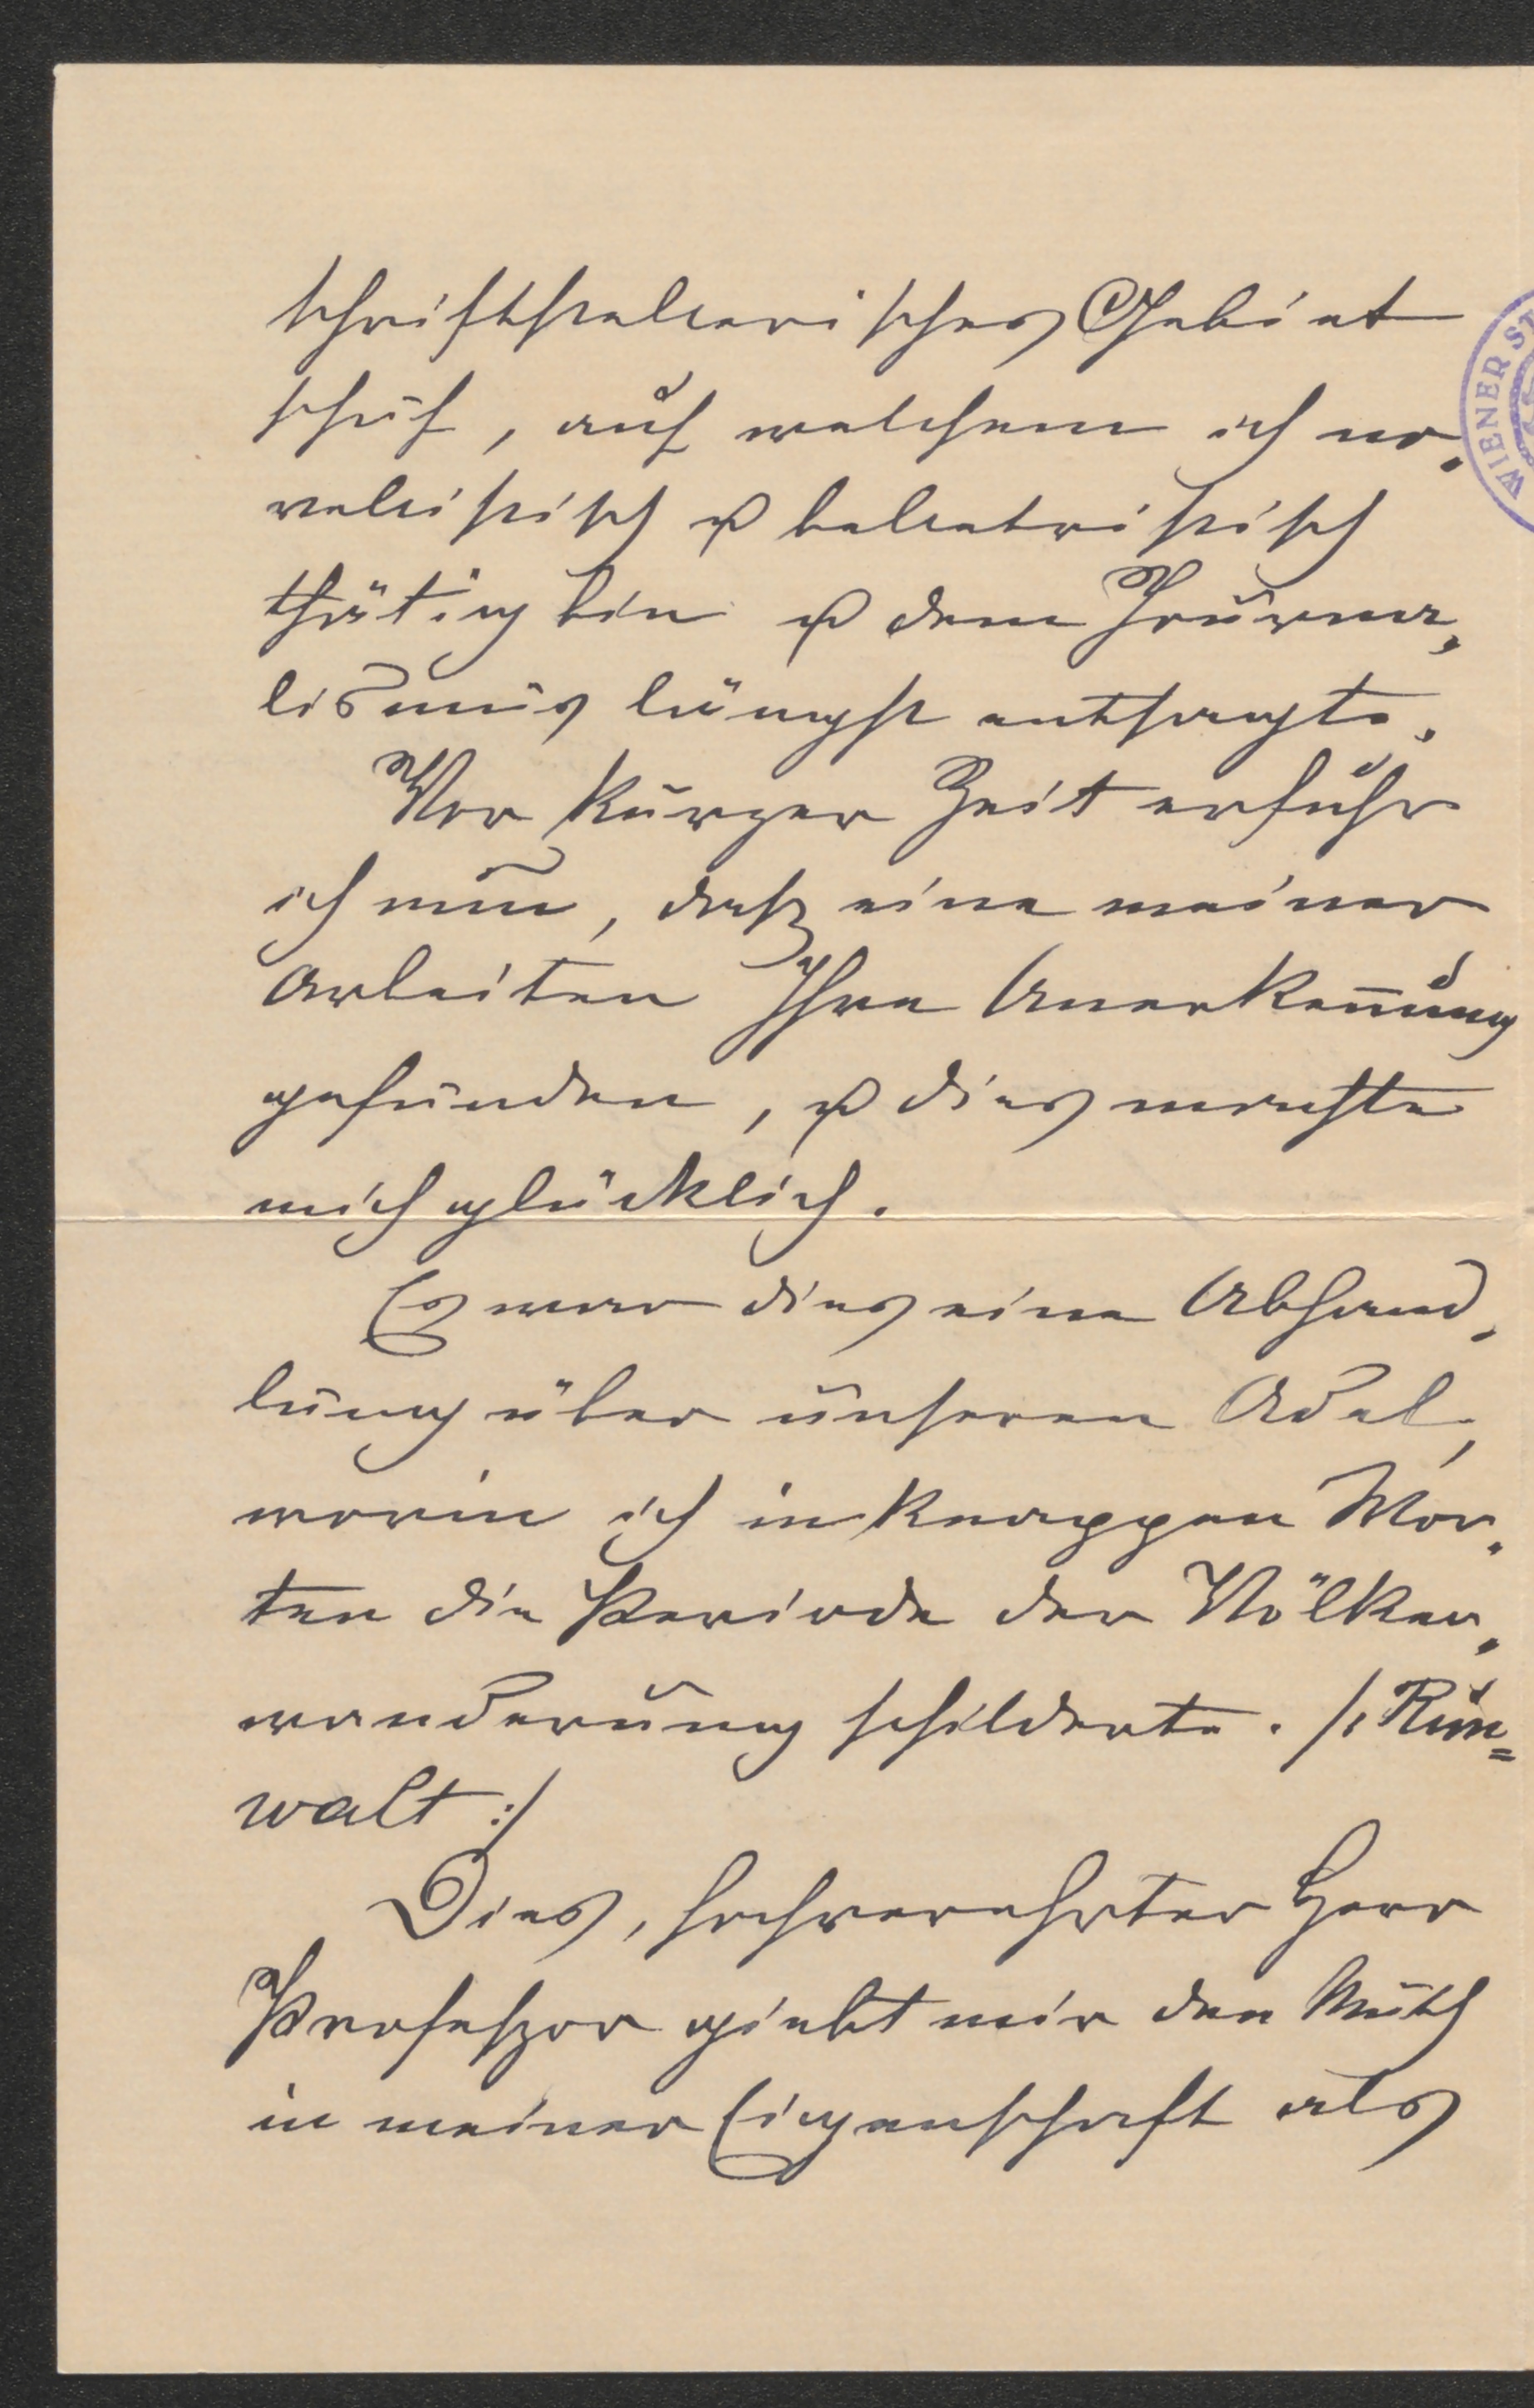 schriftstellerisches Gebiet
schuf, auf welchem ich no„
vellistisch u belletristisch
thätig bin u dem Journa„
lismus längst entsagte.
Vor kurzer Zeit erfuhr
ich nun, daß eine meiner
Arbeiten Ihre Anerkeñung
gefunden, u dies machte
mich glücklich.
Es war dies eine Abhand„
lung über unseren Adel,
worin ich in knappen Wor„
ten die Periode der Völker„
wanderung schilderte. /: Rim=
walt :/
Dies, hochverehrter Herr
Profeßor giebt mir den Muth
in meiner Eigenschaft als
WIENER ST